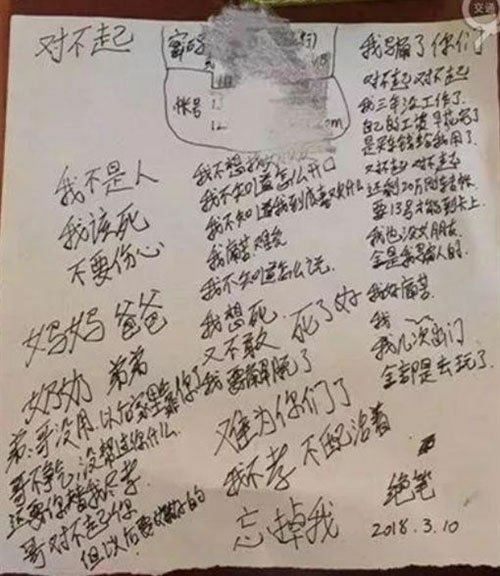 交通
对不起
密码
帐号
我不是人
我该死
不要伤心
妈妈 爸爸
奶奶 弟弟
弟,哥没用,以后家里靠你了
哥不争气,没帮过你什么.
还要你替我尽孝.
哥对不起你
但以后要好好的
我不知道怎么开口
我不知道我到底喜欢什么
我痛苦.难受
我不知道怎么说.
我想死.
又不敢 死了好
我要解脱了
难为你们了
我不孝 不配活着
忘掉我
我骗了你们
对不起.对不起
我三年没工作了.
自己的工资早花完了
对不起 对不起
还剩20万
要13号才能到卡上.
我也没女朋友.
全是我骗人的.
我好痛苦.
我
我几次出门
全部是去玩了.
绝笔
2018.3.10